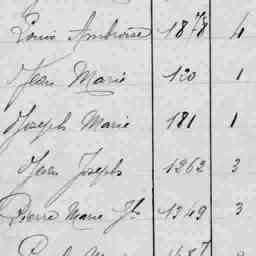 Louis Ambroise 1878 4
Jean Marie 120 1
Joseph Marie 181 1
Jean Joseph 1362 3
Pierre Marie Jh 1349 3